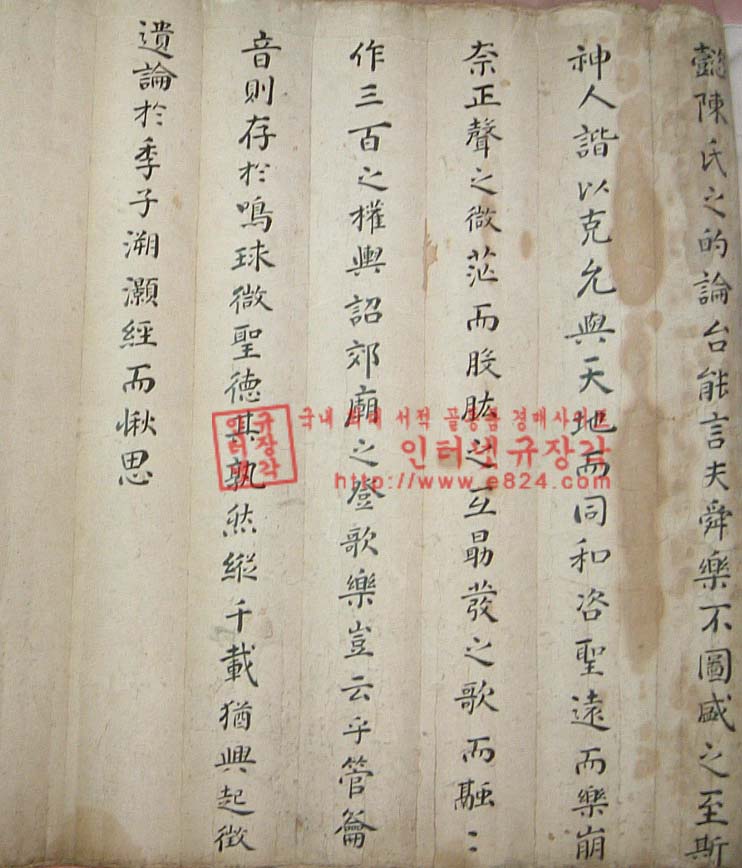 懿陳氏之的論台能言夫舜樂不圖盛之至斯
神人諧以克允與天地而同和咨聖遠而樂崩
奈正聲之微茫而股肱之互勗發之歌而融〻
作三百之權輿詔郊廟之登歌樂豈云乎管籥
音則存於鳴球微聖德其孰然縱千載猶興起徵
遺論於季子溯灝經而愀思
규장각
인터넷
국내 최대 서적 골동품 경매사이트
인터넷 규장각
http://www.e824.com